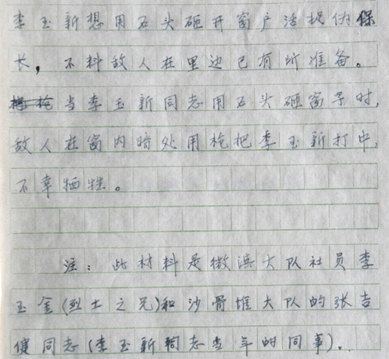 李玉新想用石头砸开窗户活捉伪保
长，不料敌人在里边已有所准备。
当李玉新同志用石头砸窗子时，
敌人在窗内暗处用枪把李玉新打中，
不幸牺牲。
注：此材料是微浜大队社员李
玉金(烈士之兄)和沙骨堆大队的张吉
健同志(李玉新同志当年的同事)．